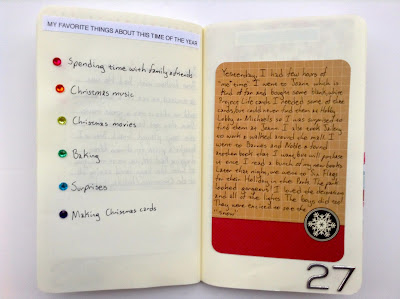 MY FAVORITE THINGS ABOUT THIS TIME OF THE YEAR
Spending time with family & friends
Christmas music
Christmas movies
Baking
Surprises
Making Christmas cards
Yesterday, I had few hours of
"me" time. I went to Joann which is
kind of far and bought some blank white
Project Life cards. I needed some of the
cards but could never find them at Hobby
Lobby or Michaels so I was surprised to
find them at Joann. I also took
to work & walked around the mall. I
went to Barnes and Noble & found
another book that I want but will purchase
at once. I read a bunch of my new books.
Later that night, we went to Six Flags
for their Holiday in the Park. The park
looked gorgeous! I loved the
and all of the lights. The boys did too!
They were excited to see the
"snow".
27